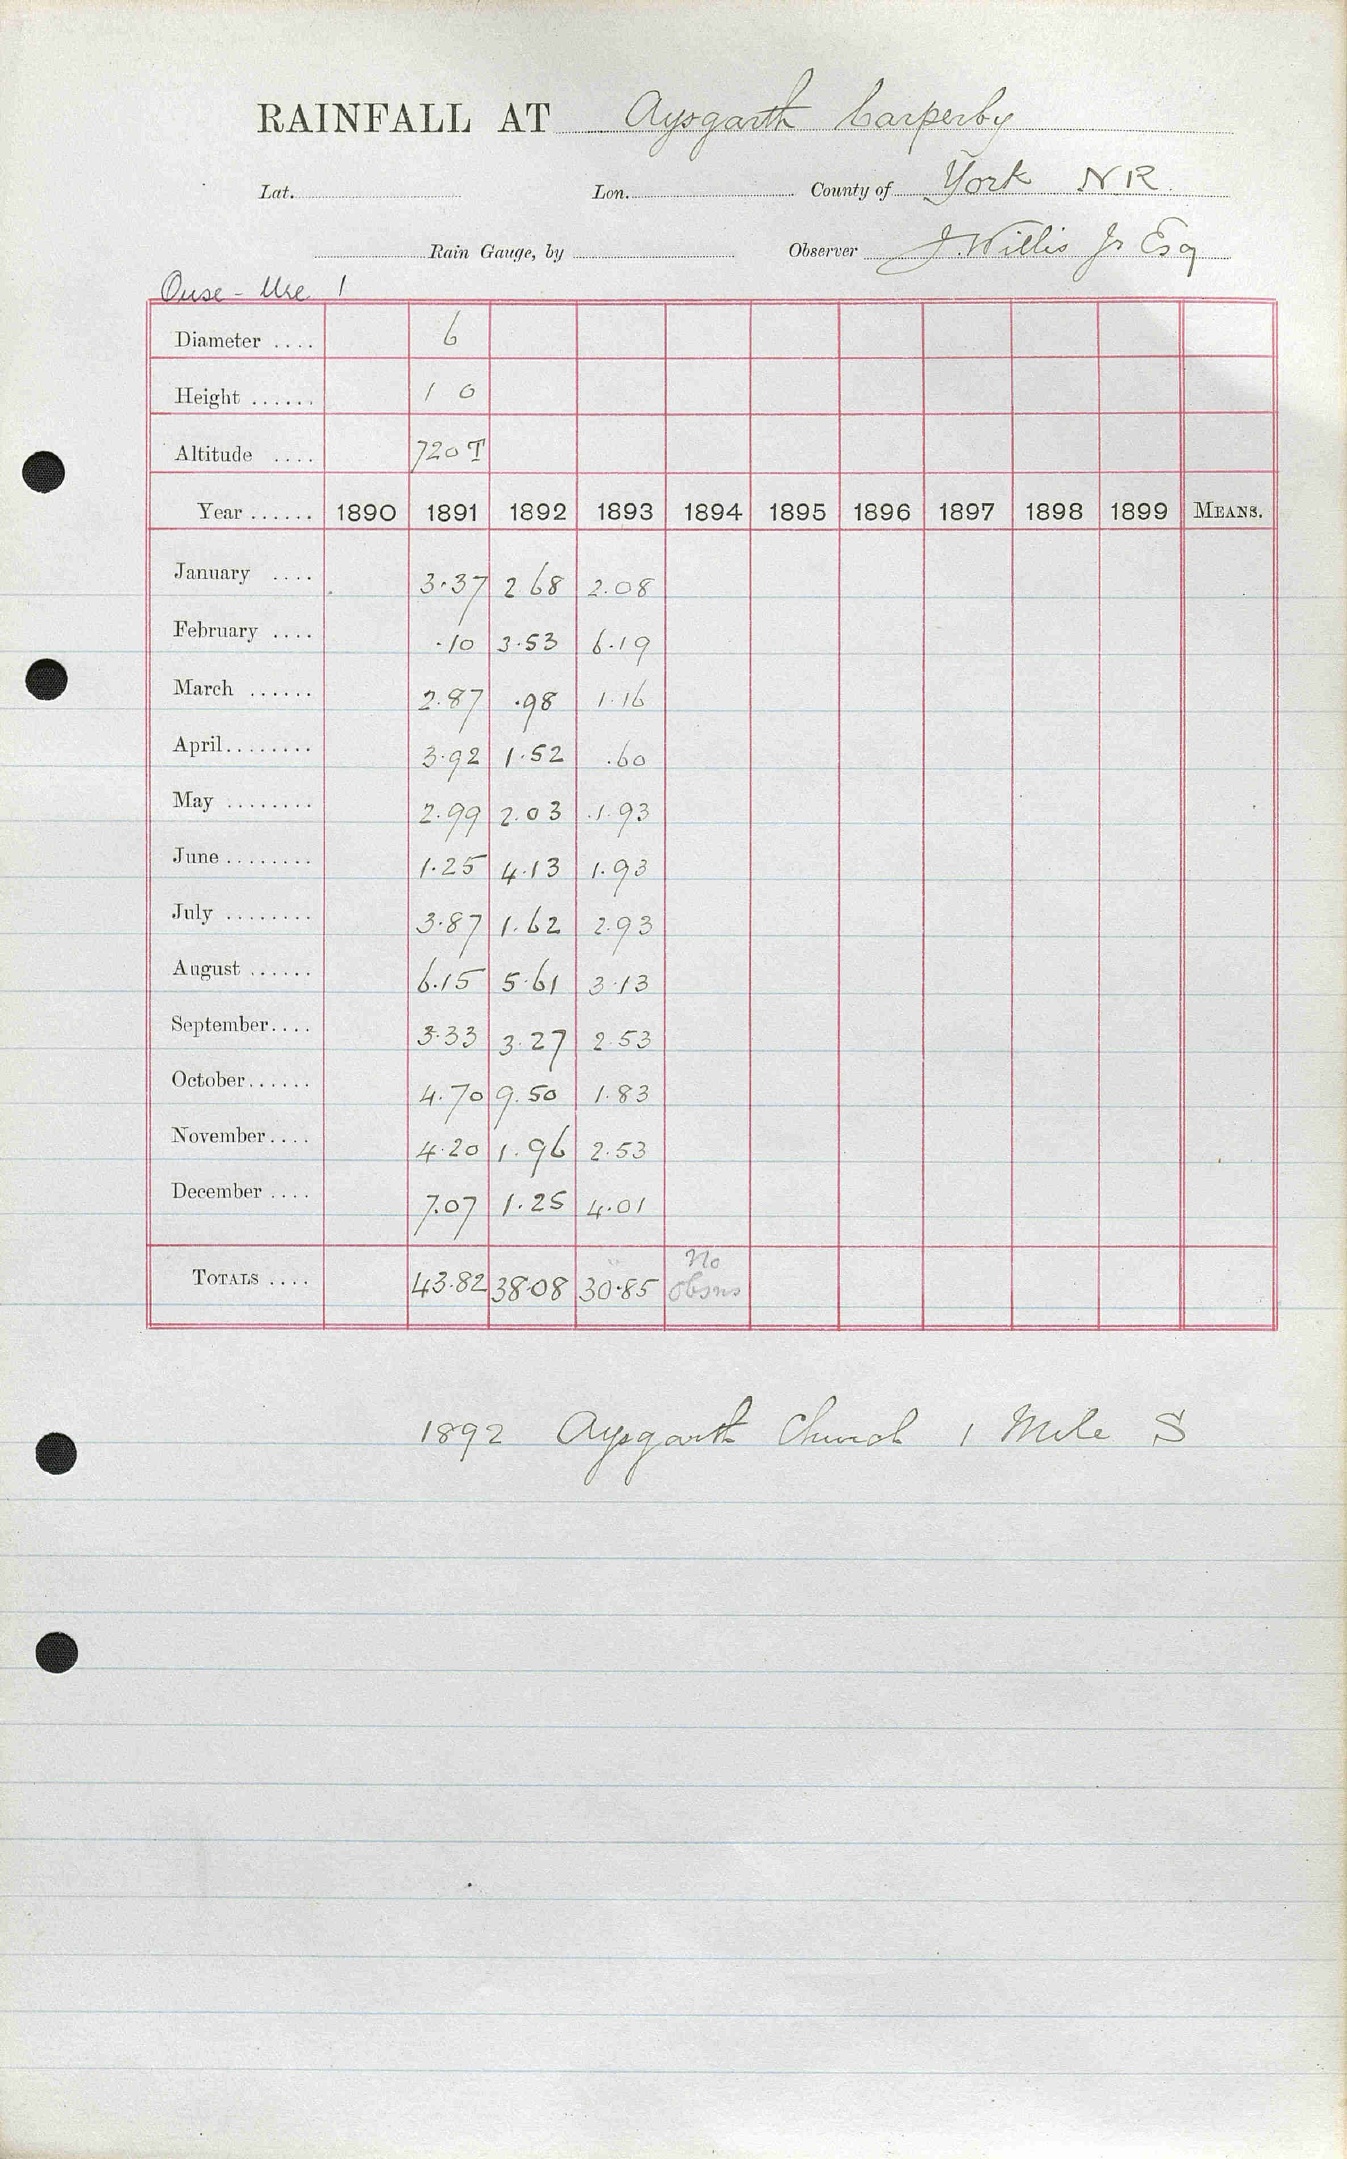 RAINFALL AT Aysgarth Carperby
Lat. Lon. County of York NR
Rain Gauge, by Observer J. Willis Jr Esq
Ouse - Ure 1
Diameter .... 6
Height ...... 1 0
Altitude .... 720 T
Year ...... 1890 1891 1892 1893 1894 1895 1896 1897 1898 1899 MEANS.
January .... 3.37 2 68 2.08
February .... .10 3.53 6.19
March ...... 2.87 .98 1.16
April........ 3.92 1.52 .60
May ........ 2.99 2.03 1.93
June ........ 1.25 4.13 1.93
July ........ 3.87 1.62 2.93
August ...... 6.15 5.61 3.13
September.... 3.33 3.27 2.53
October...... 4.70 9.50 1.83
November.... 4.20 1.96 2.53
December .... 7.07 1.25 4.01
TOTALS .... 43.82 38.08 30.85 No obsns
1892 Aysgarth Church 1 Mile S